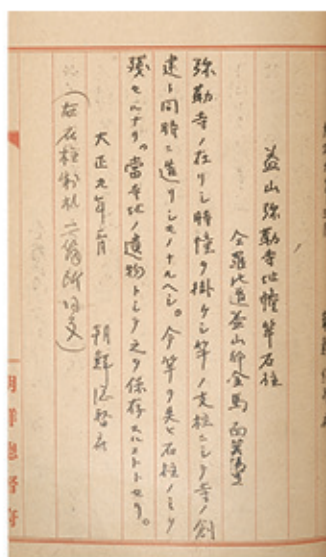 益山弥勒寺址幢竿石柱
全羅北道益山郡金馬面箕陽里
弥勒寺ノ在リシ時幢ヲ掛ケシ竿ノ支柱ニシテ寺ノ創
建ト同時ニ造リシモノナルヘシ。今竿ヲ失ヒ石柱ノミヲ
残セルナリ。當寺址ノ遺物トシテ之ヲ保存スルコトトセリ。
大正九年 月
朝鮮總督府
(右石柱 二 同文)
朝鮮總督府